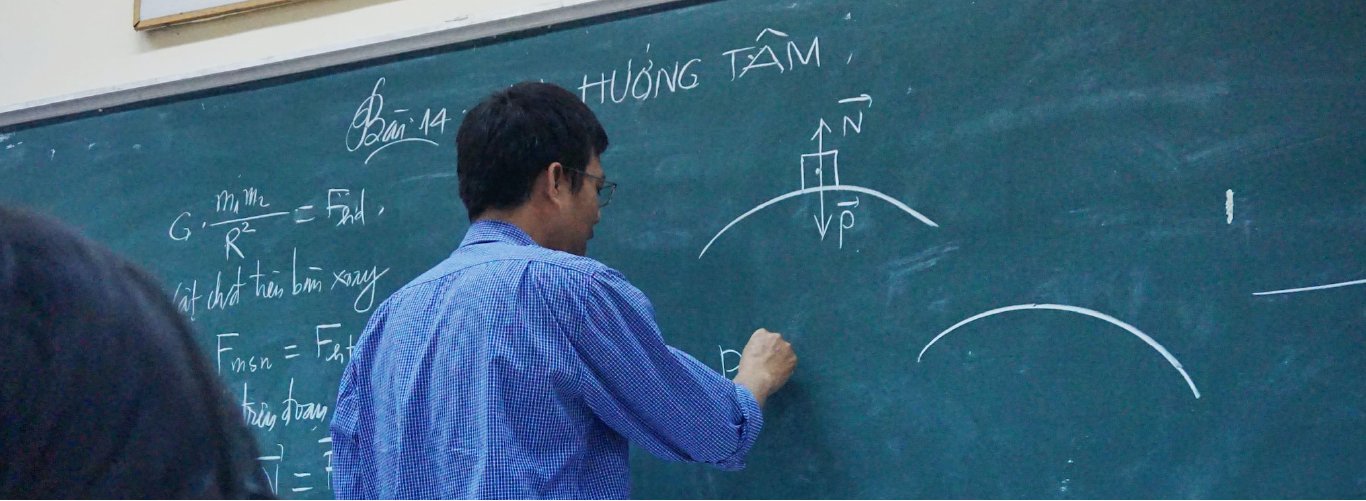 Bài 14: HƯỚNG TÂM
G. m₁m₂ / R² = Fhd.
vật chđ trên bàn xoay
Fmsn = Fht
trên đoạn
N⃗ =
N⃗
P⃗
P